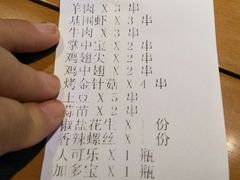 羊肉 X 3 串
基围虾 X 3 串
牛肉 X 3 串
掌中宝 X 2 串
鸡翅尖 X 2 串
鸡中翅 X 2 串
烤金针菇 X 4 串
土豆 X 5 串
蒜苗 X 2 串
椒盐花生 X 份
香辣螺丝 X 份
大可乐 X 1 瓶
加多宝 X 1 瓶